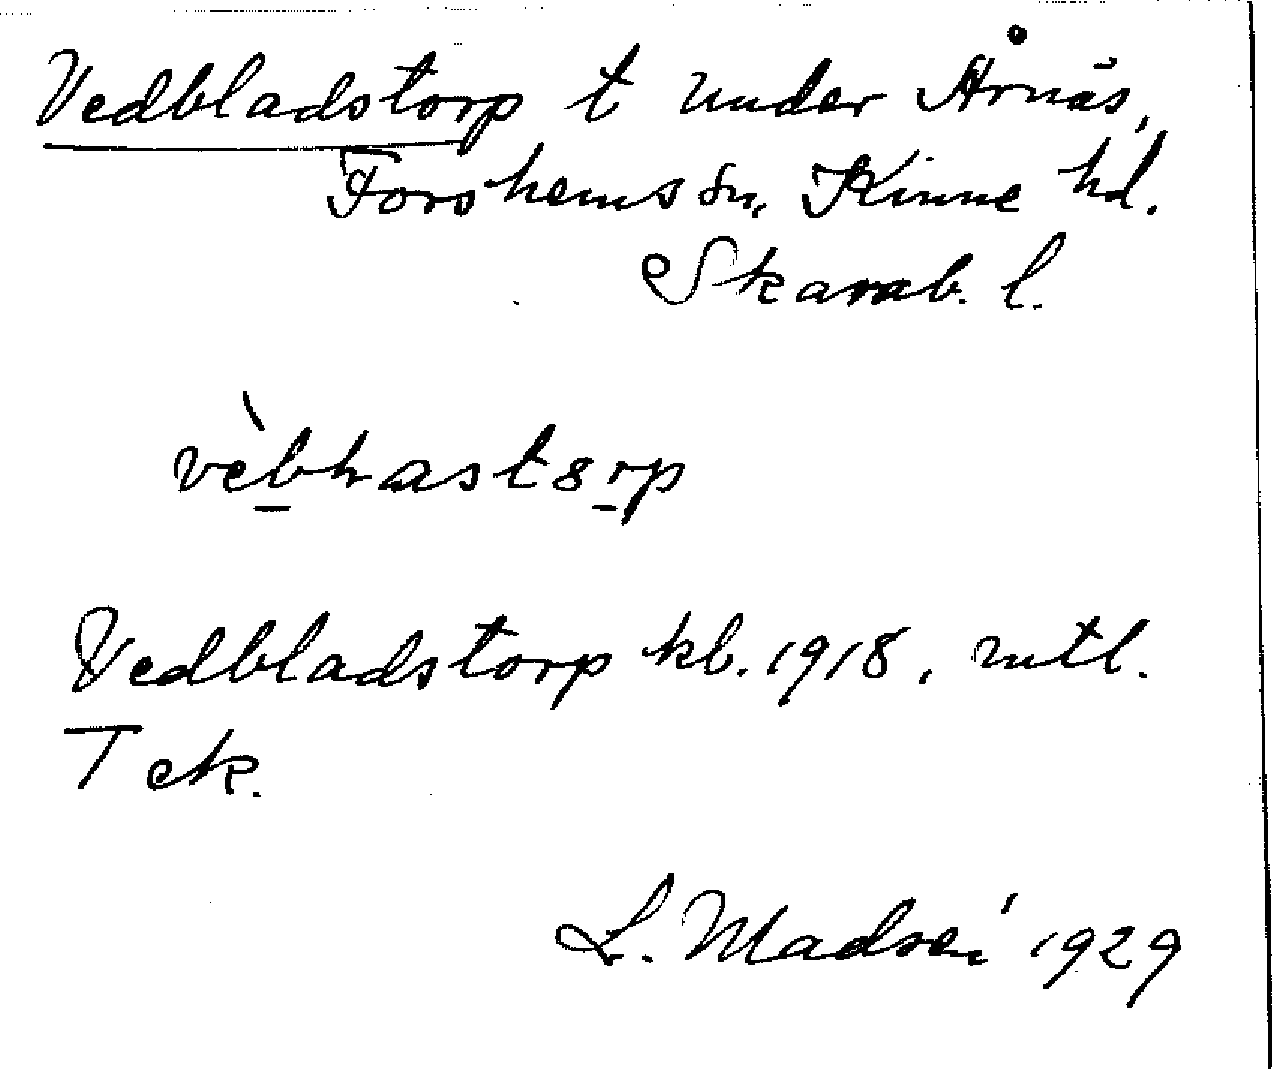 Vedbladstorp t under Årnäs,
Forshems sn, Kinne hd.
Skarab. l.
vèbhastɷrp
Vedbladstorp kb. 1918, mtl.
Tek.
L. Madsén 1929